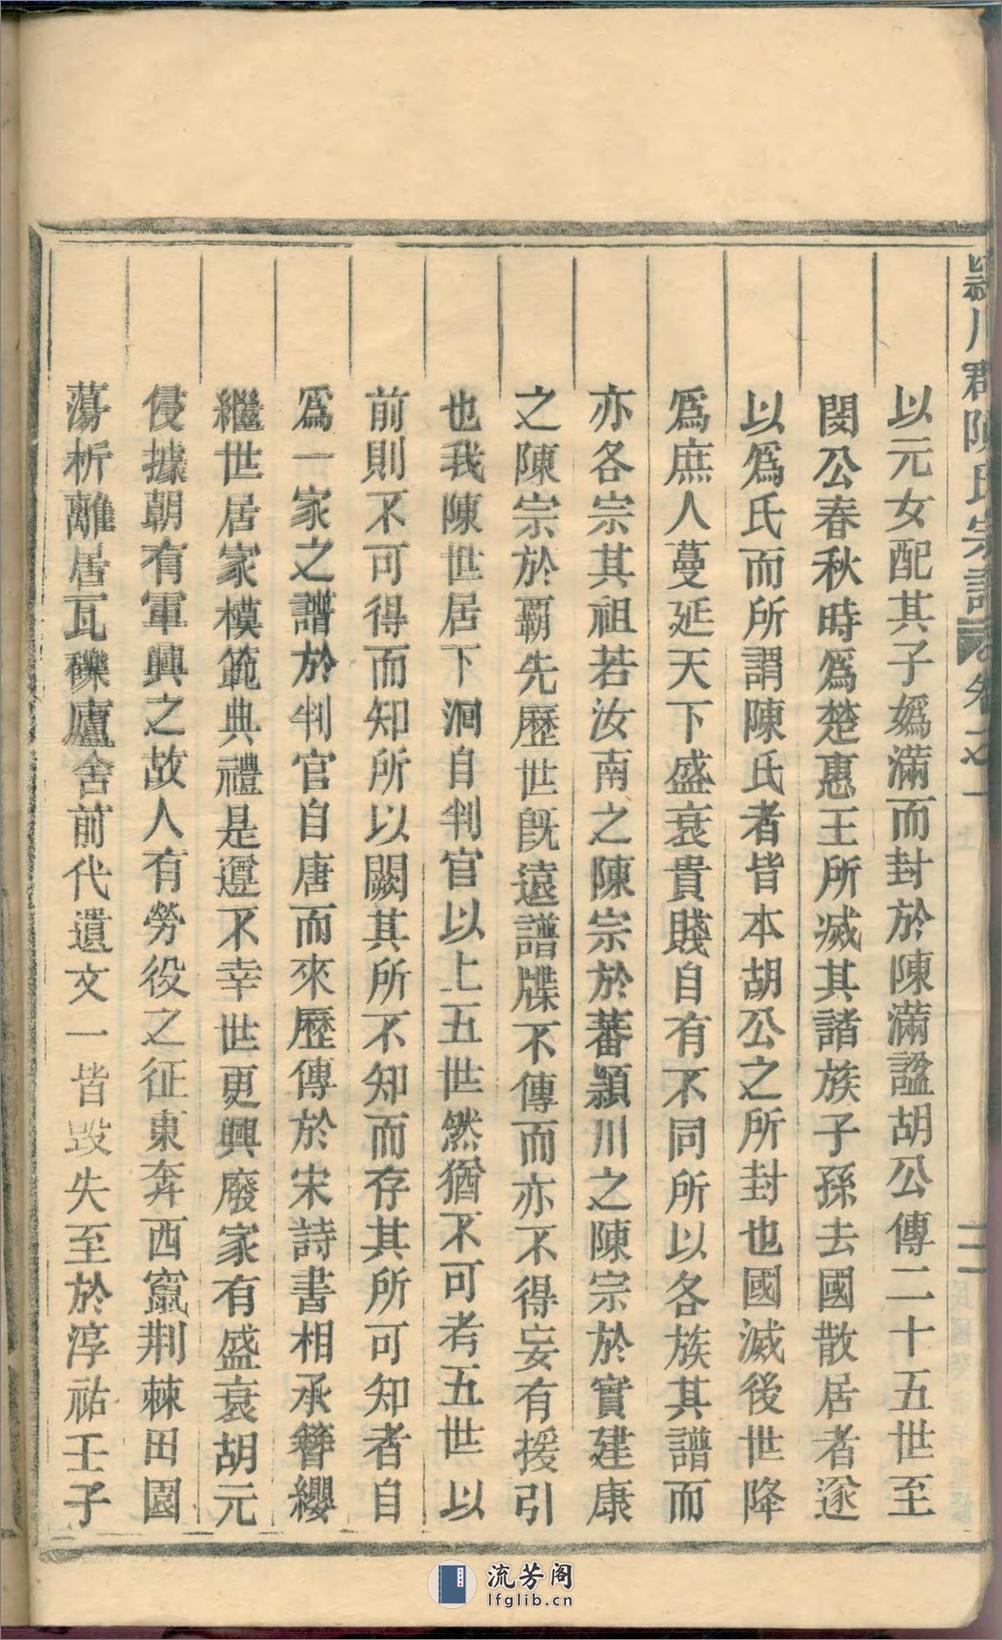 潁川郡陳氏宗譜 卷之一 二
以元女配其子嬀滿而封於陳滿諡胡公傳二十五世至
閔公春秋時爲楚惠王所滅其諸族子孫去國散居者遂
以爲氏而所謂陳氏者皆本胡公之所封也國滅後世降
爲庶人蔓延天下盛衰貴賤自有不同所以各族其譜而
亦各宗其祖若汝南之陳宗於蕃潁川之陳宗於實建康
之陳宗於霸先歷世旣遠譜牒不傳而亦不得妄有援引
也我陳世居下泂自判官以上五世然猶不可考五世以
前則不可得而知所以闕其所不知而存其所可知者自
爲一家之譜於判官自唐而來歷傳於宋詩書相承簪纓
繼世居家模範典禮是遵不幸世更興廢家有盛衰胡元
侵據朝有軍興之故人有勞役之征東奔西竄荆棘田園
蕩析離居瓦礫廬舍前代遺文一皆毀失至於淳祐壬子
流芳阁
lfglib.cn